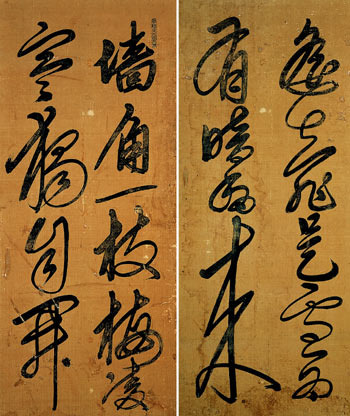 墙角一枝梅凌
寒獨自開
遥知非是雪為
有暗香来